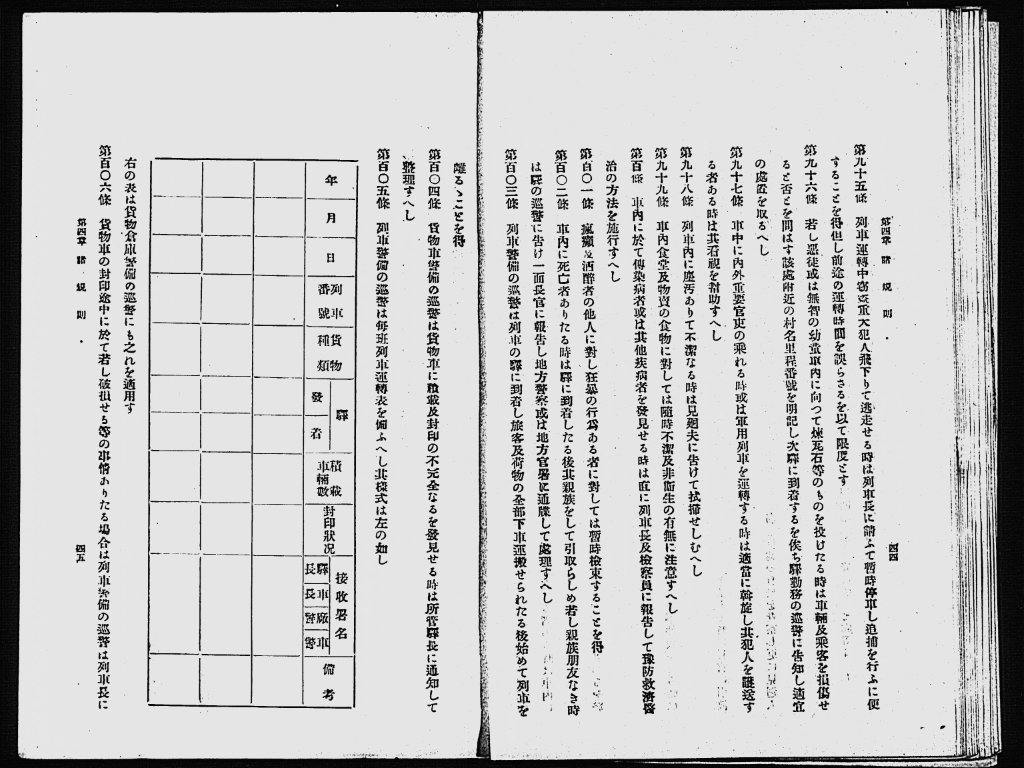 第四章 諸規則
四四
第九十五條 列車運轉中竊盜重大犯人飛下りて逃走せる時は列車長に請ふて暫時停車し追捕を行ふに便
することを得但し前途の運轉時間を誤らさるを以て限度とす
第九十六條 若し惡徒或は無智の幼童車內に向つて煉瓦石等のものを投けたる時は車輛及乘客を損傷せ
ると否とを問はす該處附近の村名里程番號を明記し次驛に到着するを俟ち驛勤務の巡警に告知し適宜
の處置を取るへし
第九十七條 車中に內外重要官吏の乘れる時或は軍用列車を運轉する時は適當に斡旋し其犯人を護送す
る者ある時は其看視を幇助すへし
第九十八條 列車內に塵汚ありて不潔なる時は見廻夫に告けて拭掃せしむへし
第九十九條 車內食堂及物賣の食物に對しては隨時不潔及非衞生の有無に注意すへし
第百條 車內に於て傳染病者或は其他疾病者を發見せる時は直に列車長及檢察員に報告して豫防救濟醫
治の方法を施行すへし
第百〇一條 瘋癲及酒醉者の他人に對し狂暴の行爲ある者に對しては暫時檢束することを得
第百〇二條 車內に死亡者ありたる時は驛に到着したる後其親族をして引取らしめ若し親族朋友なき時
は驛の巡警に告け一面長官に報告し地方警察或は地方官署に通牒して處理すへし
第百〇三條 列車警備の巡警は列車の驛に到着し旅客及荷物の全部下車運搬せられたる後始めて列車を
離るゝことを得
第百〇四條 貨物車警備の巡警は貨物車に積載及封印の不完全なるを發見せる時は所管驛長に通知して
整理すへし
第百〇五條 列車警備の巡警は每班列車運轉表を備ふへし其樣式は左の如し
年
月
日
列車
番號
貨物
種類
驛
發
着
積載
車輛數
封印狀况
接收署名
驛長
車長
廠警
車警
備考
右の表は貨物倉庫警備の巡警にも之れを適用す
第百〇六條 貨物車の封印途中に於て若し破損せる等の事情ありたる場合は列車警備の巡警は列車長に
第四章 諸規則
四五